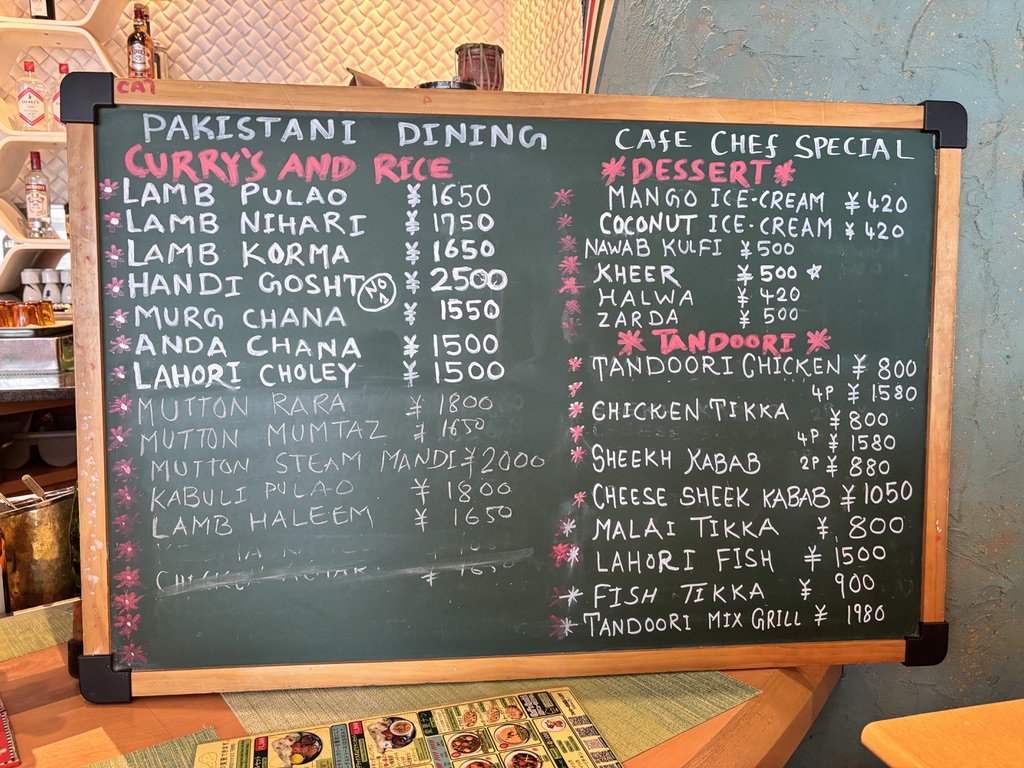 CAT
PAKISTANI DINING
CURRY'S AND RICE
LAMB PULAO ¥ 1650
LAMB NIHARI ¥ 1750
LAMB KORMA ¥ 1650
HANDI GOSHT ¥ 2500
MURG CHANA ¥ 1550
ANDA CHANA ¥ 1500
LAHORI CHOLEY ¥ 1500
MUTTON RARA ¥ 1800
MUTTON MUMTAZ ¥ 1650
MUTTON STEAM MANDI ¥ 2000
KABULI PULAO ¥ 1800
LAMB HALEEM ¥ 1650
¥ 1650
CAFE CHEF SPECIAL
*DESSERT*
MANGO ICE-CREAM ¥ 420
COCONUT ICE-CREAM ¥ 420
NAWAB KULFI ¥ 500
KHEER ¥ 500 ☆
HALWA ¥ 420
ZARDA ¥ 500
*TANDOORI*
TANDOORI CHICKEN ¥ 800
4P ¥ 1580
CHICKEN TIKKA ¥ 800
4P ¥ 1580
SHEEKH KABAB 2P ¥ 880
CHEESE SHEEK KABAB ¥ 1050
MALAI TIKKA ¥ 800
LAHORI FISH ¥ 1500
FISH TIKKA ¥ 900
TANDOORI MIX GRILL ¥ 1980